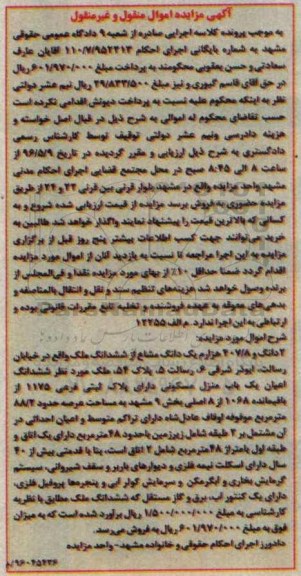 آگهی مزایده اموال منقول و غیرمنقول
به موجب پرونده کلاسه اجرایی صادره از شعبه ۹ دادگاه عمومی حقوقی
مشهد به شماره بایگانی اجرای احکام ۱۱۰/۷/۹۵۲۴۱۳ آقایان عارف
سعادتی و حسن یعقوبی محکومند به پرداخت مبلغ ۶۰۱/۹۷۰/۰۰۰ ریال
در حق آقای قاسم گیوری و نیز مبلغ ۲۹/۸۳۳/۵۰۰ ریال نیم عشر دولتی
نظر به اینکه محکوم علیه نسبت به پرداخت دیونش اقدامی نکرده است
حسب تقاضای محکوم له اموالی به شرح ذیل در قبال اصل خواسته و
هزینه دادرسی ونیم عشر دولتی توقیف توسط کارشناس رسمی
دادگستری به شرح ذیل ارزیابی و مقرر گردیده در تاریخ ۹۶/۵/۹ از
ساعت ۸ الی ۸:۴۵ صبح در محل مجتمع قضایی اجرای احکام مدنی
مشهد واحد مزایده واقع در مشهد بلوار قرنی بین قرنی ۲۲ و ۲۴ از طریق
مزایده حضوری به فروش برسد. مزایده از قیمت ارزیابی شده شروع و به
کسانی که بالاترین قیمت را پیشنهاد نمایند واگذار خواهد شد. طالبین به
خرید می‌توانند جهت کسب اطلاعات بیشتر پنج روز قبل از برگزاری
مزایده به این اجرا مراجعه تا نسبت به بازدید آنان از اموال مورد مزایده
اقدام گردد ضمنا حداقل ۱۰٪ از بهای مورد مزایده نقدا و فی‌المجلس از
برنده وصول خواهد شد هزینه‌های تنظیم سند و نقل و انتقال بالمناصفه و
بدهی‌های معوقه به عهده فروشنده و تخلف تابع مقررات قانونی بوده و
ارتباطی به این اجرا ندارد. م.الف ۱۲۲۵۵
شرح اموال مورد مزایده:
۲ دانگ و ۲۰۷/۸ هزارم یک دانگ مشاع از ششدانگ ملک واقع در خیابان
رسالت، ابوذر شرقی ۶، رسالت ۵، پلاک ۵۴، ملک مورد نظر ششدانگ
اعیان یک باب منزل مسکونی دارای پلاک ثبتی فرعی ۱۱۷۵ از
باقیمانده ۱۰۶۸ از ۸ اصلی بخش ۹ مشهد به مساحت عرصه حدود ۸۸/۲
مترمربع موقوفه اوقاف عادل‌شاه دارای تراکم متوسط و اعیان احداثی در
آن مشتمل بر ۲ طبقه شامل زیرزمین باحدود ۴۸مترمربع دارای یک اتاق و
طبقه اول بامتراژ ۴۸مترمربع شامل ۲ اتاق است، بنا با قدمتی بیش از ۴۰
سال دارای اسکلت نیمه فلزی و دیوارهای باربر و سقف شیروانی، سیستم
گرمایش بخاری و آبگرمکن و سرمایش کولر آبی و پنجره‌ها پروفیل فلزی،
دارای یک کنتور آب، برق و گاز مستقل که ششدانگ ملک مطابق با نظریه
کارشناسی به مبلغ ۱/۵۰۰/۰۰۰/۰۰۰ ریال برآورد شده است که به میزان
فوق به مبلغ ۶۰۱/۹۷۰/۰۰۰ ریال به فروش می‌رسد.
دادورز اجرای احکام حقوقی و خانواده مشهد - واحد مزایده
۹۶۰۴۵۴۳۶/م